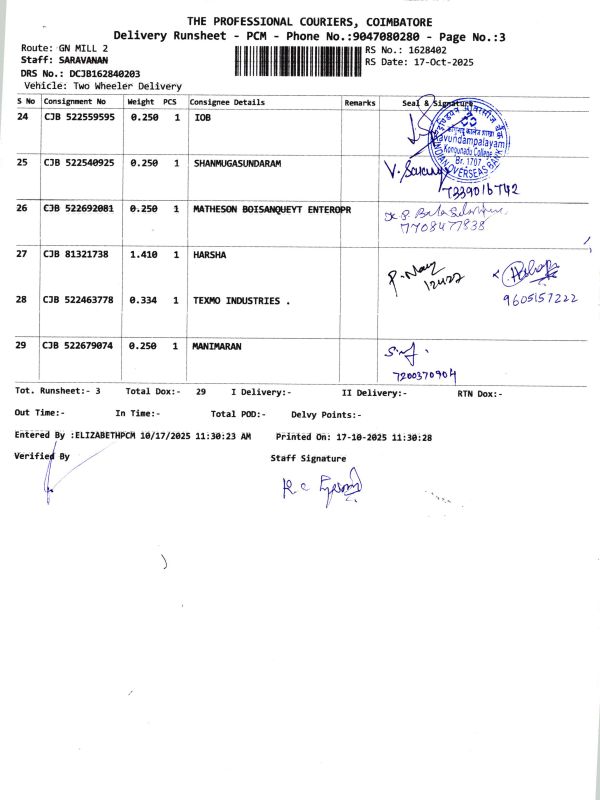 THE PROFESSIONAL COURIERS, COIMBATORE
Delivery Runsheet - PCM - Phone No.:9047080280 - Page No.:3
Route: GN MILL 2
RS No.: 1628402
Staff: SARAVANAN
RS Date: 17-Oct-2025
DRS No.: DCJB162840203
Vehicle: Two Wheeler Delivery
S No Consignment No Weight PCS Consignee Details Remarks Seal & Signature
24 CJB 522559595 0.250 1 IOB
Kavundampalayam
Kongunadu College
Br. 1707
INDIAN OVERSEAS BANK
25 CJB 522540925 0.250 1 SHANMUGASUNDARAM
7339016742
26 CJB 522692081 0.250 1 MATHESON BOISANQUEYT ENTEROPR
7708477838
27 CJB 81321738 1.410 1 HARSHA
9605157222
28 CJB 522463778 0.334 1 TEXMO INDUSTRIES .
29 CJB 522679074 0.250 1 MANIMARAN
7200370904
Tot. Runsheet:- 3 Total Dox:- 29 I Delivery:- II Delivery:- RTN Dox:-
Out Time:- In Time:- Total POD:- Delvy Points:-
Entered By :ELIZABETHPCM 10/17/2025 11:30:23 AM Printed On: 17-10-2025 11:30:28
Verified By Staff Signature